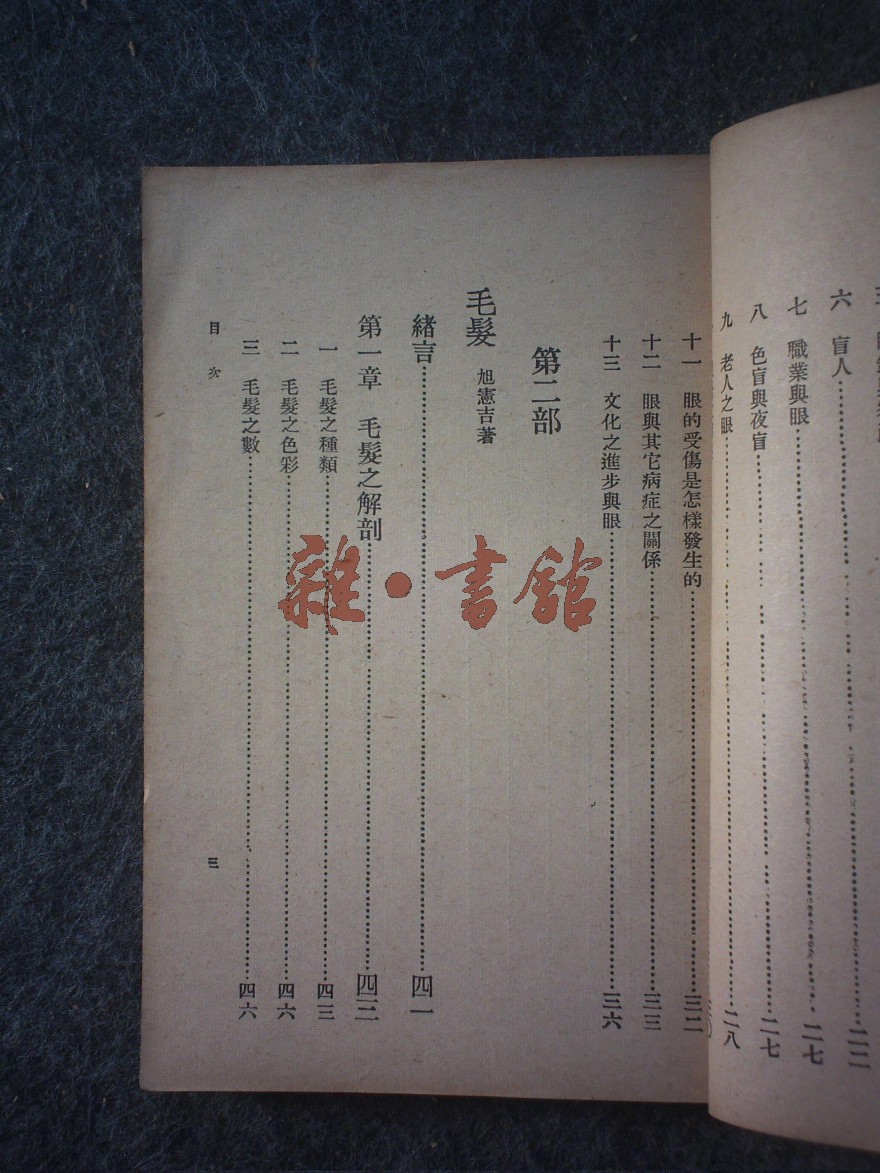 六　盲人……二二
七　職業與眼……二七
八　色盲與夜盲……二七
九　老人之眼……二八
十一　眼的受傷是怎樣發生的……三二
十二　眼與其它病症之關係……三三
十三　文化之進步與眼……三六
第二部
毛髮　旭憲吉著
緒言……四一
第一章　毛髮之解剖……四三
一　毛髮之種類……四三
二　毛髮之色彩……四六
三　毛髮之數……四六
目次
三
雜·書館